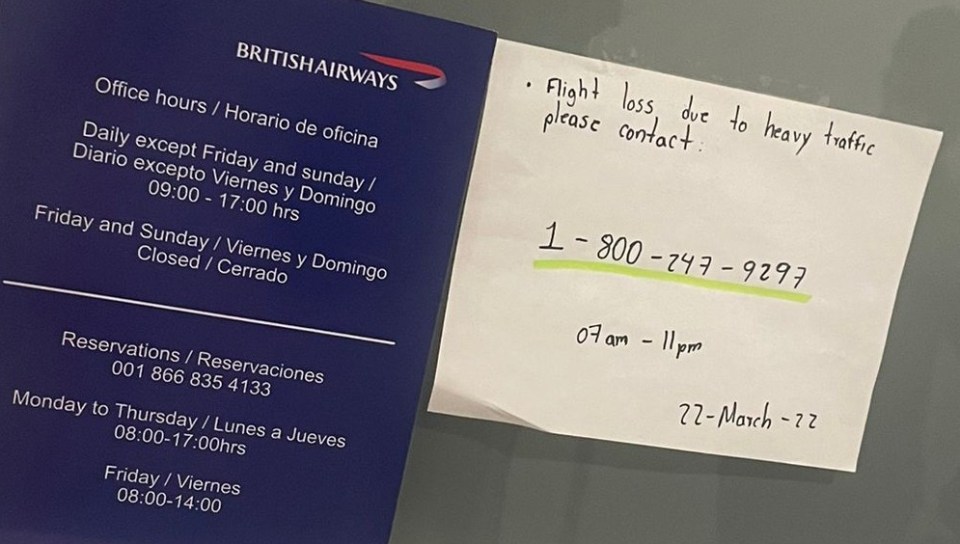 BRITISH AIRWAYS
Office hours / Horario de oficina
Daily except Friday and sunday /
Diario excepto Viernes y Domingo
09:00 - 17:00 hrs
Friday and Sunday / Viernes y Domingo
Closed / Cerrado
Reservations / Reservaciones
001 866 835 4133
Monday to Thursday / Lunes a Jueves
08:00-17:00hrs
Friday / Viernes
08:00-14:00
• Flight loss due to heavy traffic
please contact:
1 - 800 - 247 - 9297
07am - 11pm
22-March-22